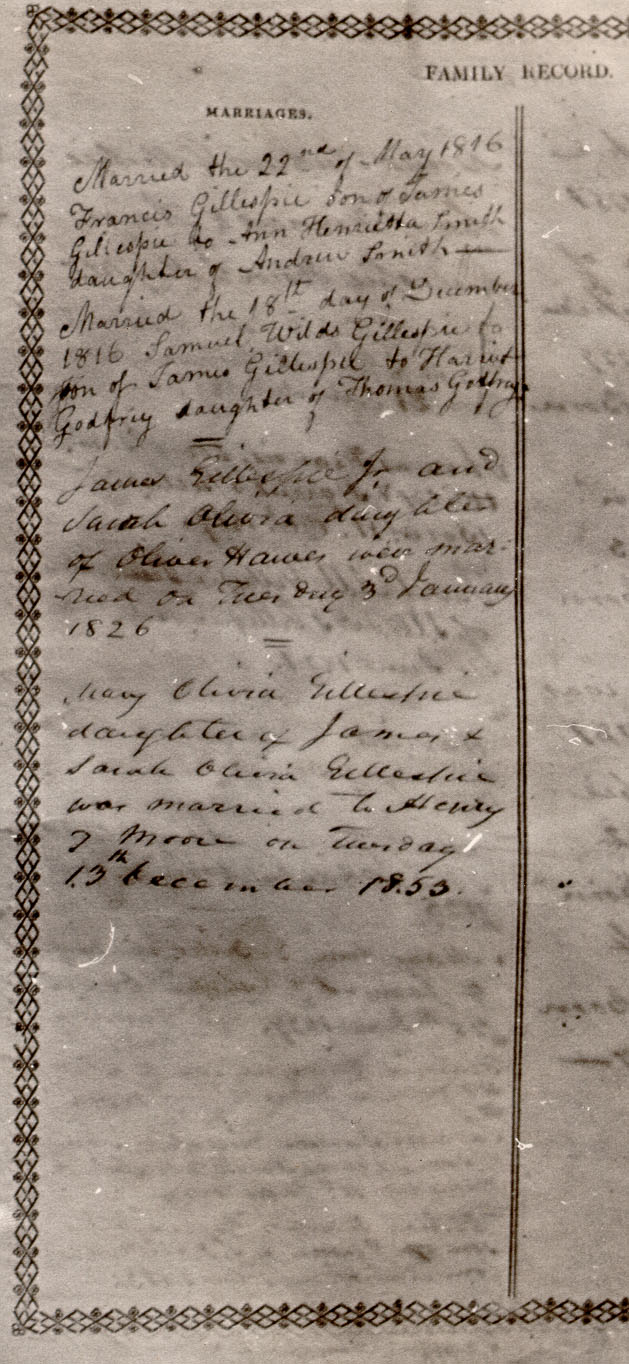 FAMILY RECORD.
MARRIAGES.
Married the 22nd of May 1816
Francis Gillespie son of James
Gillespie to Ann Henrietta Smith
daughter of Andrew Smith —
Married the 18th day of December
1816 Samuel Wilds Gillespie to
son of James Gillespie to Harriet
Godfrey daughter of Thomas Godfrey
James Gillespie Jr. and
Sarah Olivia daughter
of Oliver Hawes were mar-
ried on Tuesday 3d January
1826
Mary Olivia Gillespie
daughter of James &
Sarah Olivia Gillespie
was married to Henry
Moore on Tuesday
13th December 1853.